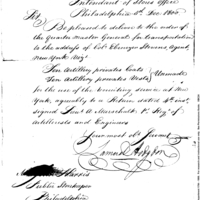 Intendant of Stores Office
Philadelphia 5th Dec 1800
Sir
Be pleased to deliver to the order of
the Quarter Master General for transportation
to the address of Col. Ebenezer Stevens, Agent,
New York Viz.
Ten Artillery privates Coats
Ten Artillery privates Vests
for the use of the territory service at New
York, agreeably to a Return dated 4th inst.
signed A. Marschalk Regt.
Artillerists and Engineers
Your most ob. Servant
Samuel Hodgdon
Harris
Public Storekeeper
Philadelphia